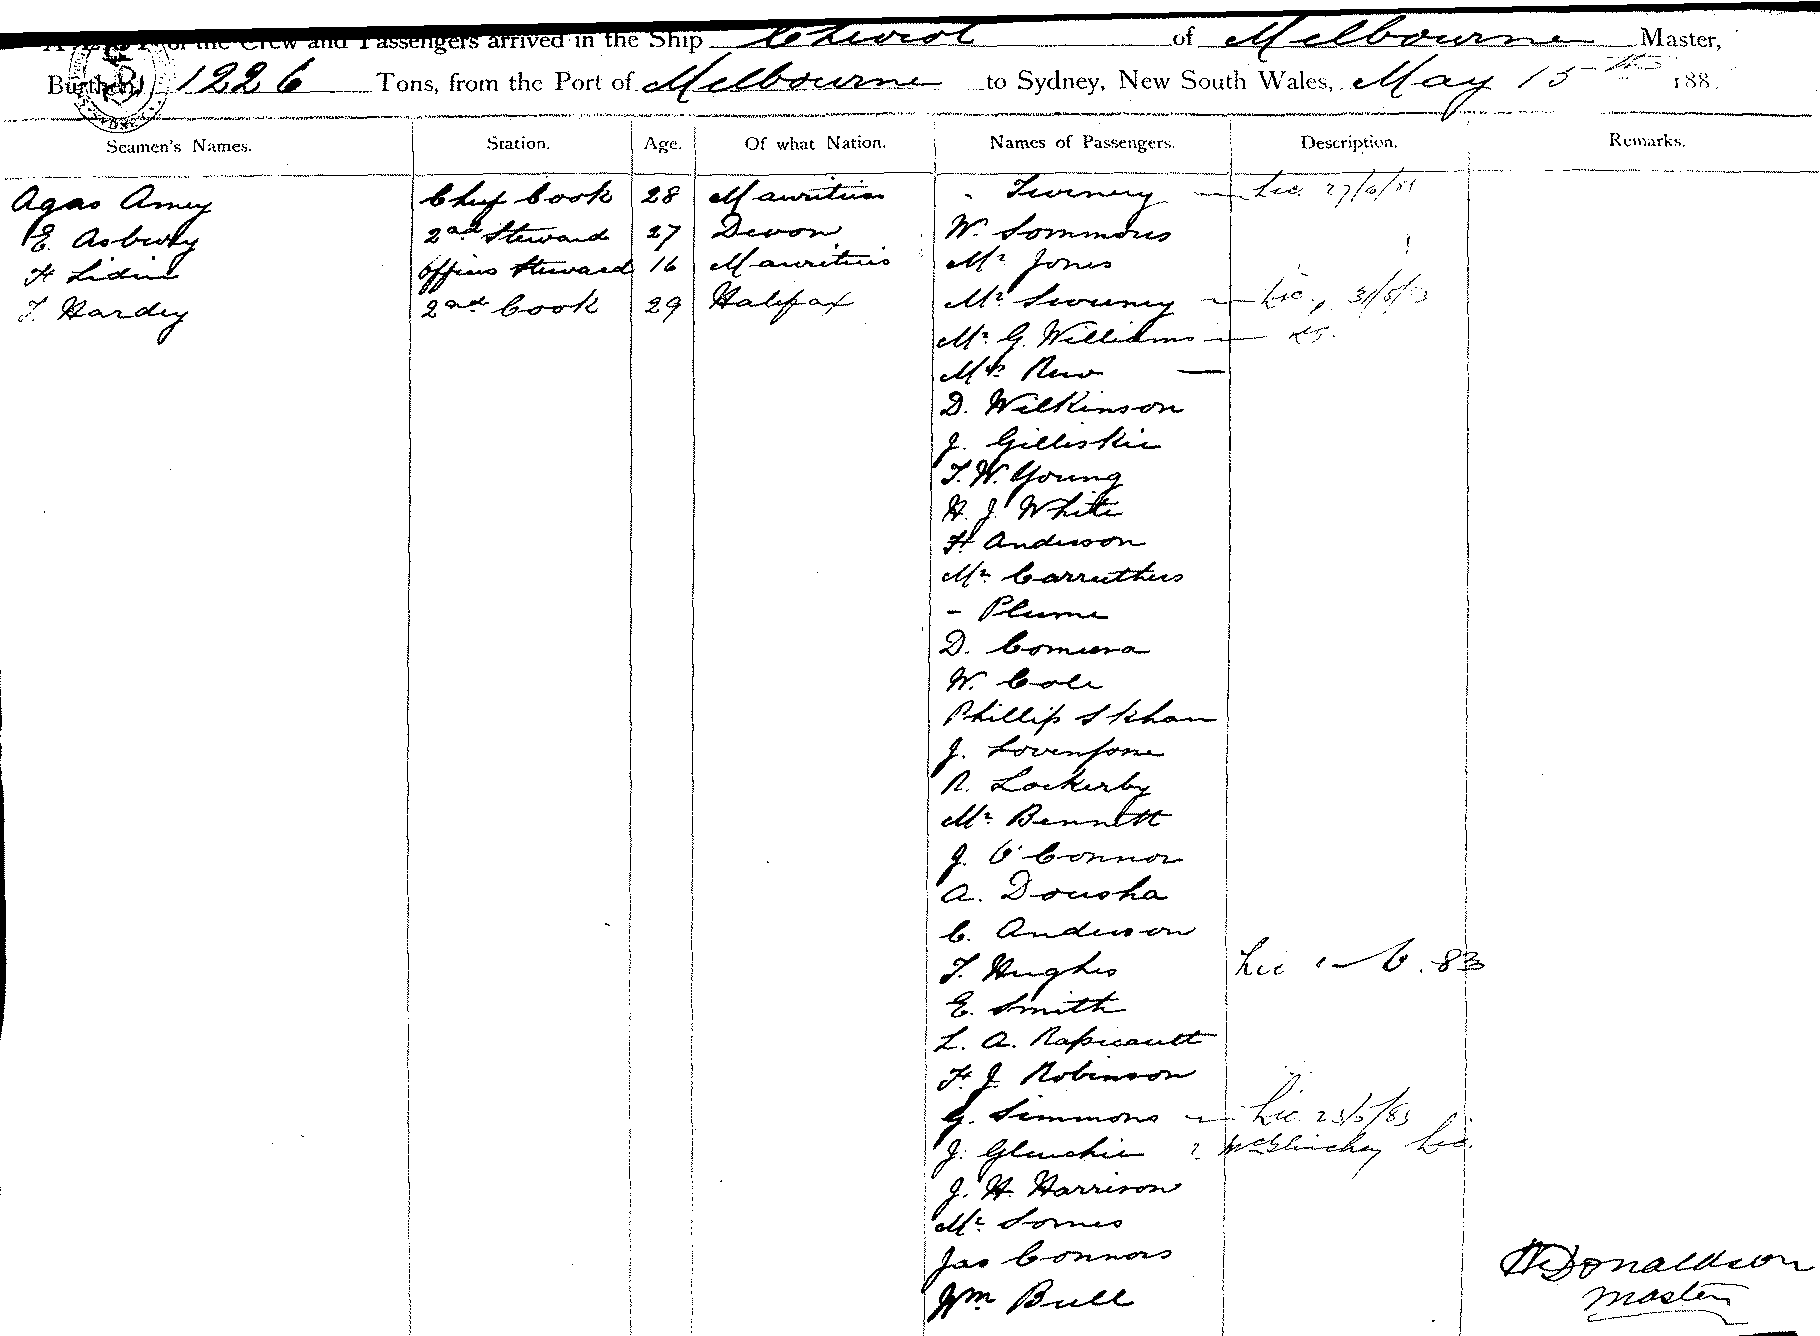 A LIST of the Crew and Passengers arrived in the Ship Cheviot of Melbourne Master,
Burthen 1226 Tons, from the Port of Melbourne to Sydney, New South Wales, May 15th 188
Seamen's Names. Station. Age. Of what Nation. Names of Passengers. Description. Remarks.
Agas Amey Chief Cook 28 Mauritius - Twiney — Lic.
E. Asbury 2nd Steward 27 Devon W. Sommons
H Lidin Officers Steward 16 Mauritius Mr Jones
T. Hardey 2nd Cook 29 Halifax Mr Sweeney — Lic,
Mr G. Williams —
Rew —
D. Wilkinson
J. Gilliskie
T. W. Young
H. J. White
H Anderson
Mr Carruthers
- Plume
D.
W. Cole
Phillip S Khan
J.
R. Lockerby
Mr Bennett
J. O'Connor
A. Dousha
C. Anderson
T. Hughes Lic 83
E. Smith
L. A. Rapicault
H J Robinson
G. Simmons — Lic.
J. Gluchie ? McGlinchey Lic.
J. H. Harrison
Mr Somes
Jas Connors
Wm Bull
Donaldson
Master